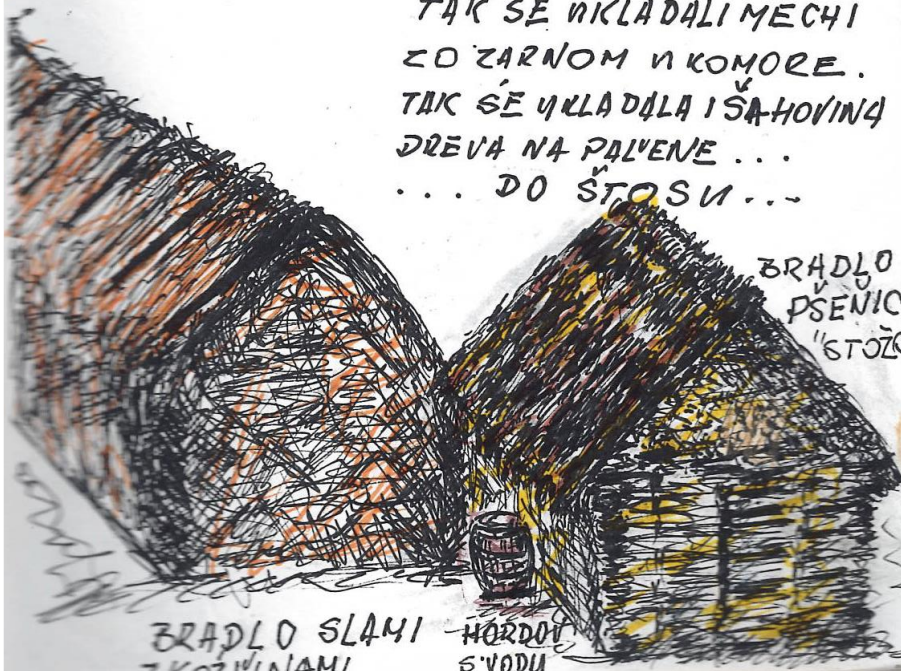 TAK SE UKLADALI MECHI
ZO ZARNOM U KOMORE.
TAK SE UKLADALA I ŠAHOVINA
DREVA NA PAĽENE...
... DO ŠTOSU...
BRADLO
PŠENIC
"STOŽ
BRADLO SLAMI
Z KOŽUŠINAMI
HORDOV
S'VODU